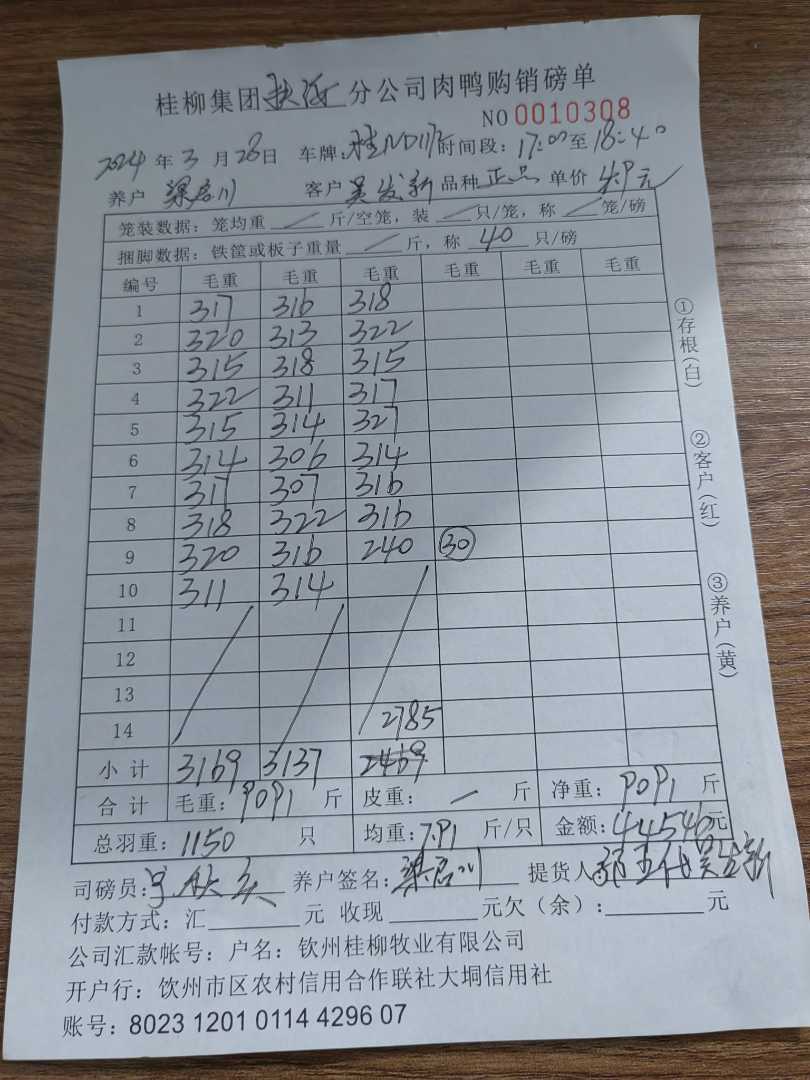 桂柳集团扶绥分公司肉鸭购销磅单
NO 0010308
2024年3月28日 车牌: 时间段: 17:00至18:40
养户 梁启川 客户 吴发新 品种 正品 单价 4.9元
笼装数据: 笼均重 / 斤/空笼, 装 / 只/笼, 称 / 笼/磅
捆脚数据: 铁筐或板子重量 / 斤, 称 40 只/磅
编号 毛重 毛重 毛重 毛重 毛重 毛重
1 317 316 318
2 320 313 322
3 315 318 315
4 322 311 317
5 315 314 327
6 314 306 314
7 317 307 316
8 318 322 316
9 320 316 240 30
10 311 314
11
12
13
14 2785
小计 3169 3137 2469
合计 毛重: 9091 斤 皮重: / 斤 净重: 9091 斤
总羽重: 1150 只 均重: 7.91 斤/只 金额: 44546元
司磅员: 养户签名: 梁启川 提货人 代吴发新
付款方式: 汇 元 收现 元欠(余): 元
公司汇款帐号: 户名: 钦州桂柳牧业有限公司
开户行: 钦州市区农村信用合作联社大垌信用社
账号: 8023 1201 0114 4296 07
①存根(白)
②客户(红)
③养户(黄)